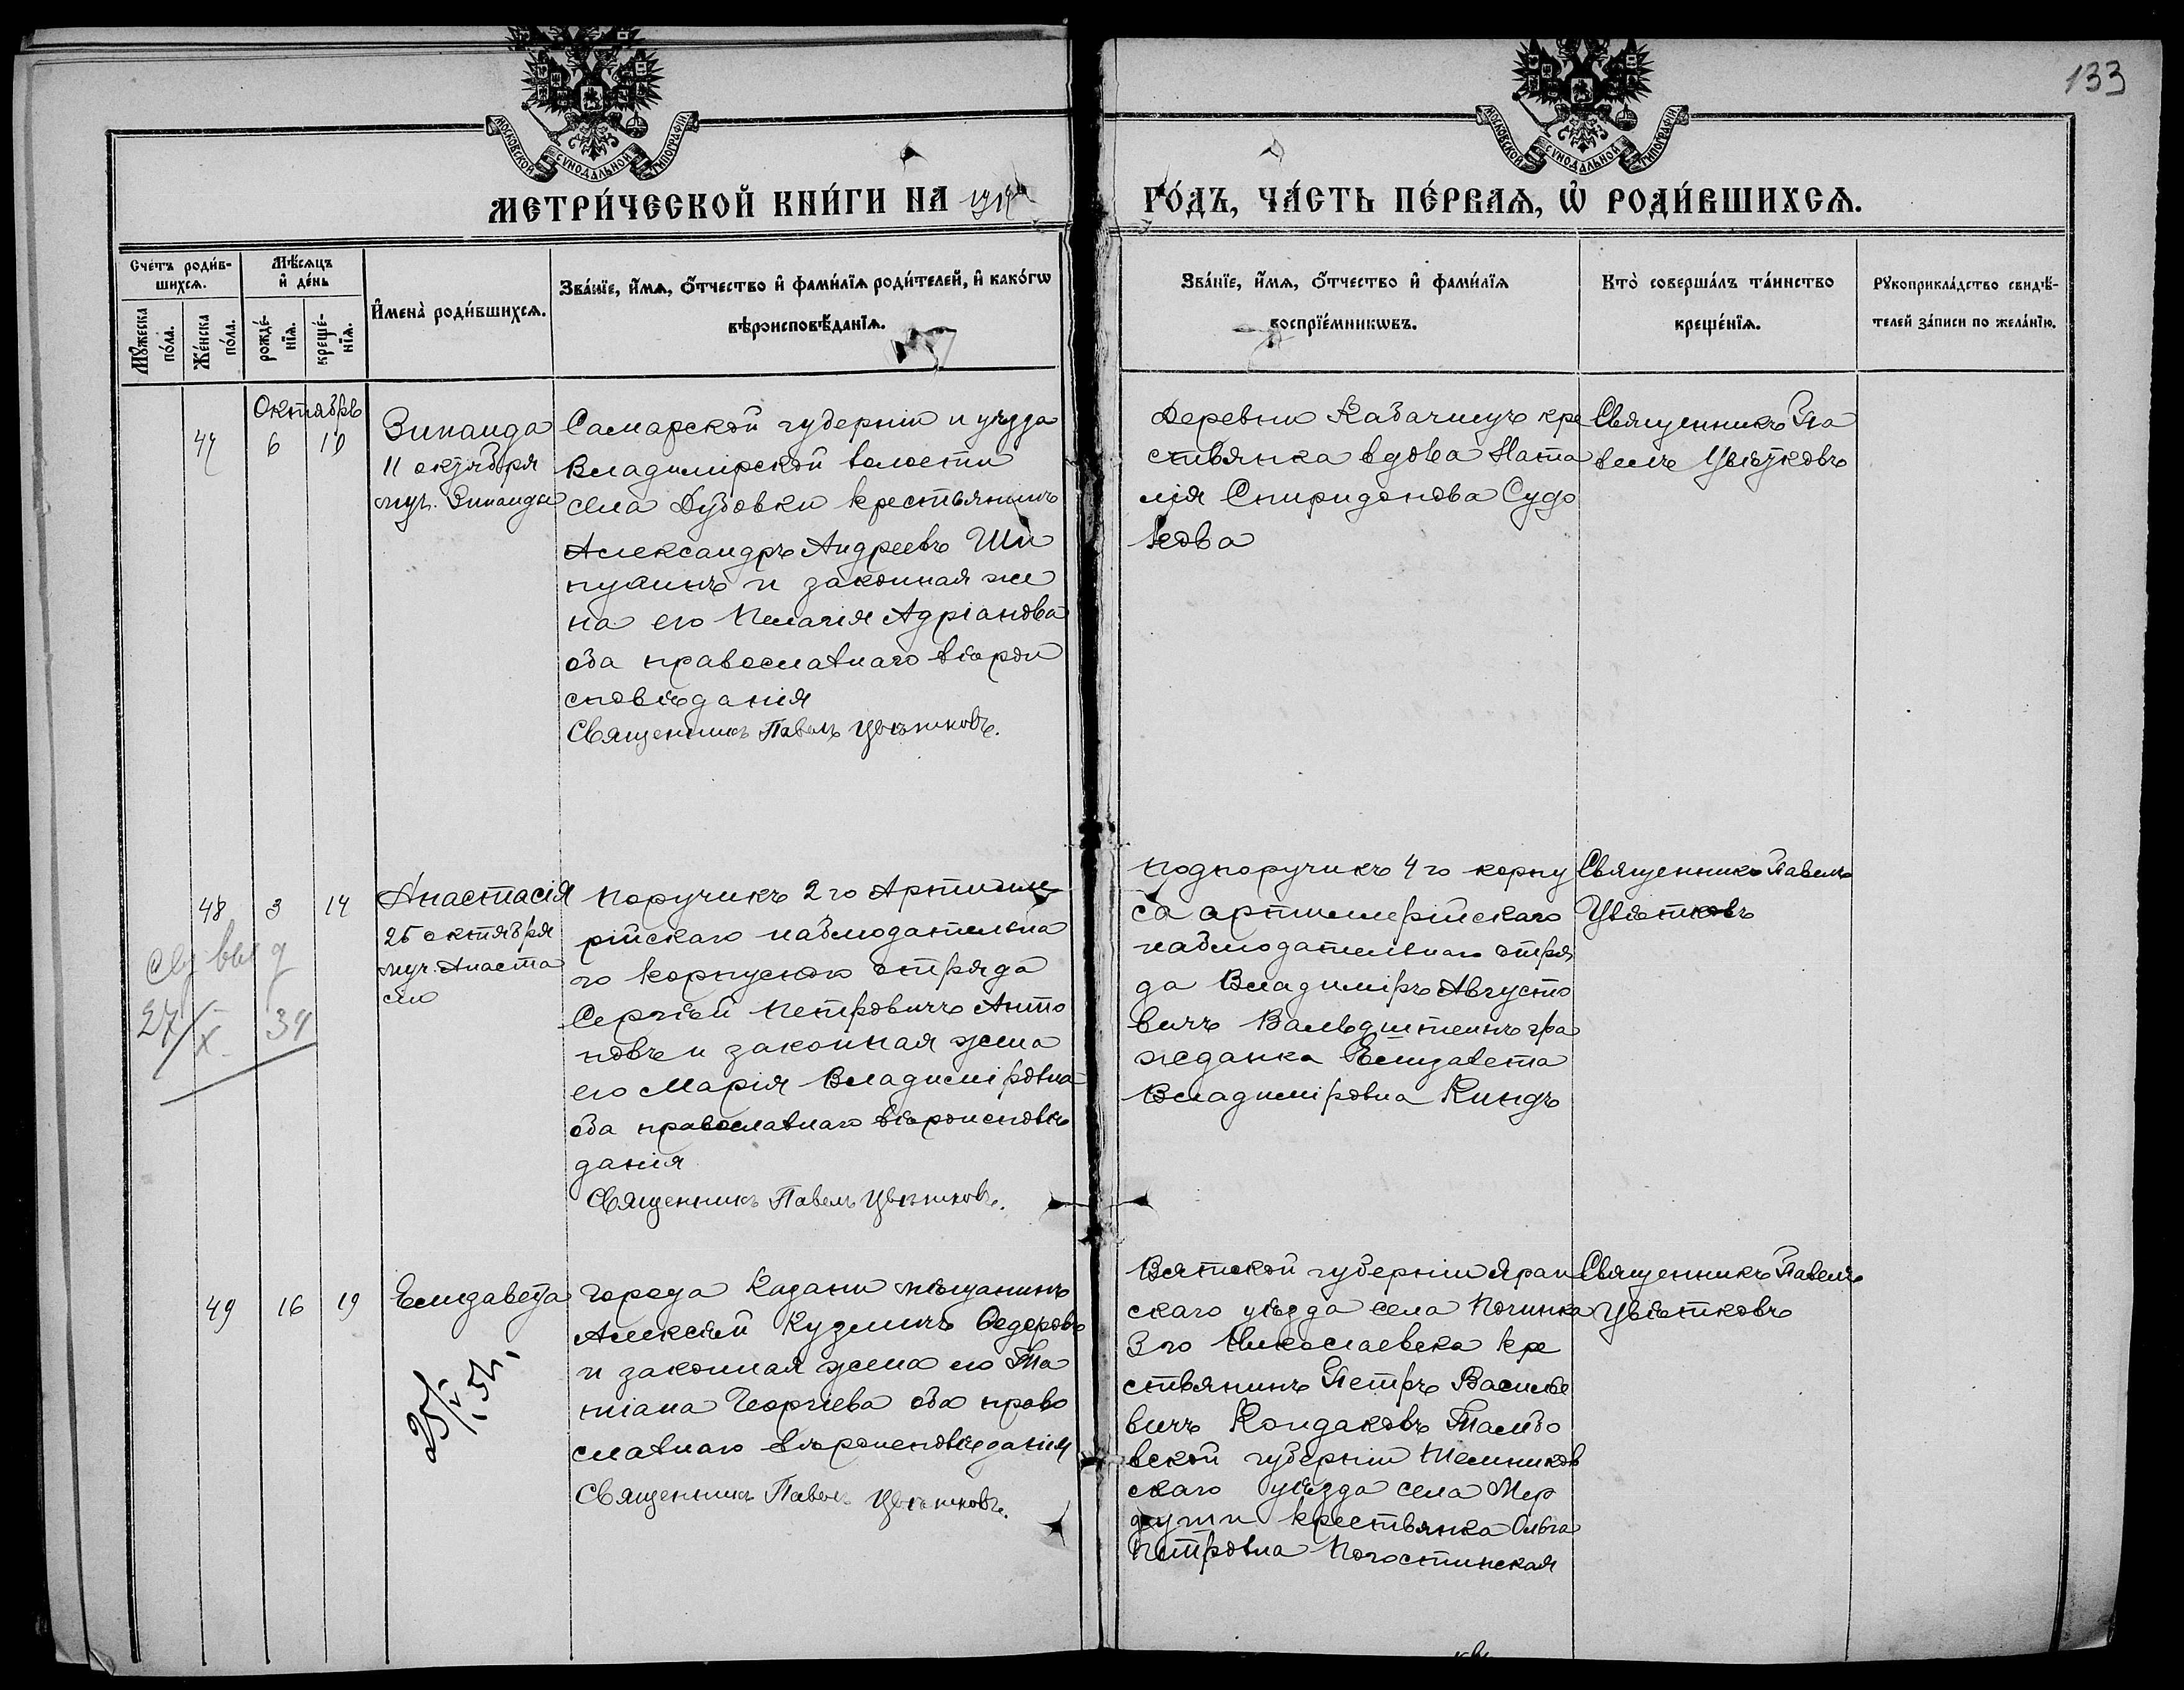 133
МОСКОВСКОЙ СѴНОДАЛЬНОЙ ТИПОГРАФІИ
МОСКОВСКОЙ СѴНОДАЛЬНОЙ ТИПОГРАФІИ
МЕТРИ́ЧЕСКОЙ КНИ́ГИ НА
ГО́ДЪ, ЧА́СТЬ ПЕ́РВАѦ, Ѡ҆ РОДИ́ВШИХСѦ.
Сче́тъ роди́в-
шихсѧ.
Мꙋ́жеска
по́ла.
Же́нска
по́ла.
Мѣ́сѧцъ
и҆ де́нь
рожде́-
нїѧ.
креще́-
нїѧ.
И҆мена̀ роди́вшихсѧ.
Зва́нїе, и҆́мѧ, ѻ҆́тчество и҆ фами́лїѧ роди́телей, и҆ како́гѡ
вѣроисповѣ́данїѧ.
Зва́нїе, и҆́мѧ, ѻ҆́тчество и҆ фами́лїѧ
воспрїе́мникѡвъ.
Кто̀ соверша́лъ та́инство
креще́нїѧ.
Рꙋкоприкла́дство свидѣ́-
телей за́писи по жела́нїю.
Октябрь
47
6
10
Зинаида
11 октября
муч. Зинаиды
Самарской губерніи и уѣзда
Владимірской волости
села Дубовки крестьянинъ
Александръ Андреевъ Ши
пулинъ и законная же
на его Пелагія Адріанова
оба православнаго вѣрои
сповѣданія
Священникъ Павелъ Цвѣтковъ.
Деревни Кабачищъ кре
стьянка вдова Ната
лія Спиридонова Судо
кова
Священникъ Па
велъ Цвѣтковъ
48
3
14
Анастасія
25 октября
муч. Анаста
сію
выд
27/X
34
Поручикъ 2го Артилле
рійскаго наблюдательна
го корпуснаго отряда
Сергѣй Петровичъ Анто
новъ и законная жена
его Марія Владиміровна
оба православнаго вѣроисповѣ
данія
Священникъ Павелъ Цвѣтковъ.
Подпоручикъ 4го корпу
са артиллерійскаго
наблюдательнаго отря
да Владиміръ Августо
вичъ Вальдштейнъ гра
жданка Елизавета
Владиміровна Киндъ
Священникъ Павелъ
Цвѣтковъ
49
16
19
Елизавета
города Казани мѣщанинъ
Алексѣй Кузмичъ Ѳедоровъ
и законная жена его Та
тіана Георгіева оба право
славнаго вѣроисповѣданія
Священникъ Павелъ Цвѣтковъ.
Вятской губерніи Яран
скаго уѣзда села Починка
3го Николаевска кре
стьянинъ Петръ Василье
вичъ Кондаковъ Тамбо
вской губерніи Темников
скаго уѣзда села Мер
души крестьянка Ольга
Петровна Погостинская
Священникъ Павелъ
Цвѣтковъ